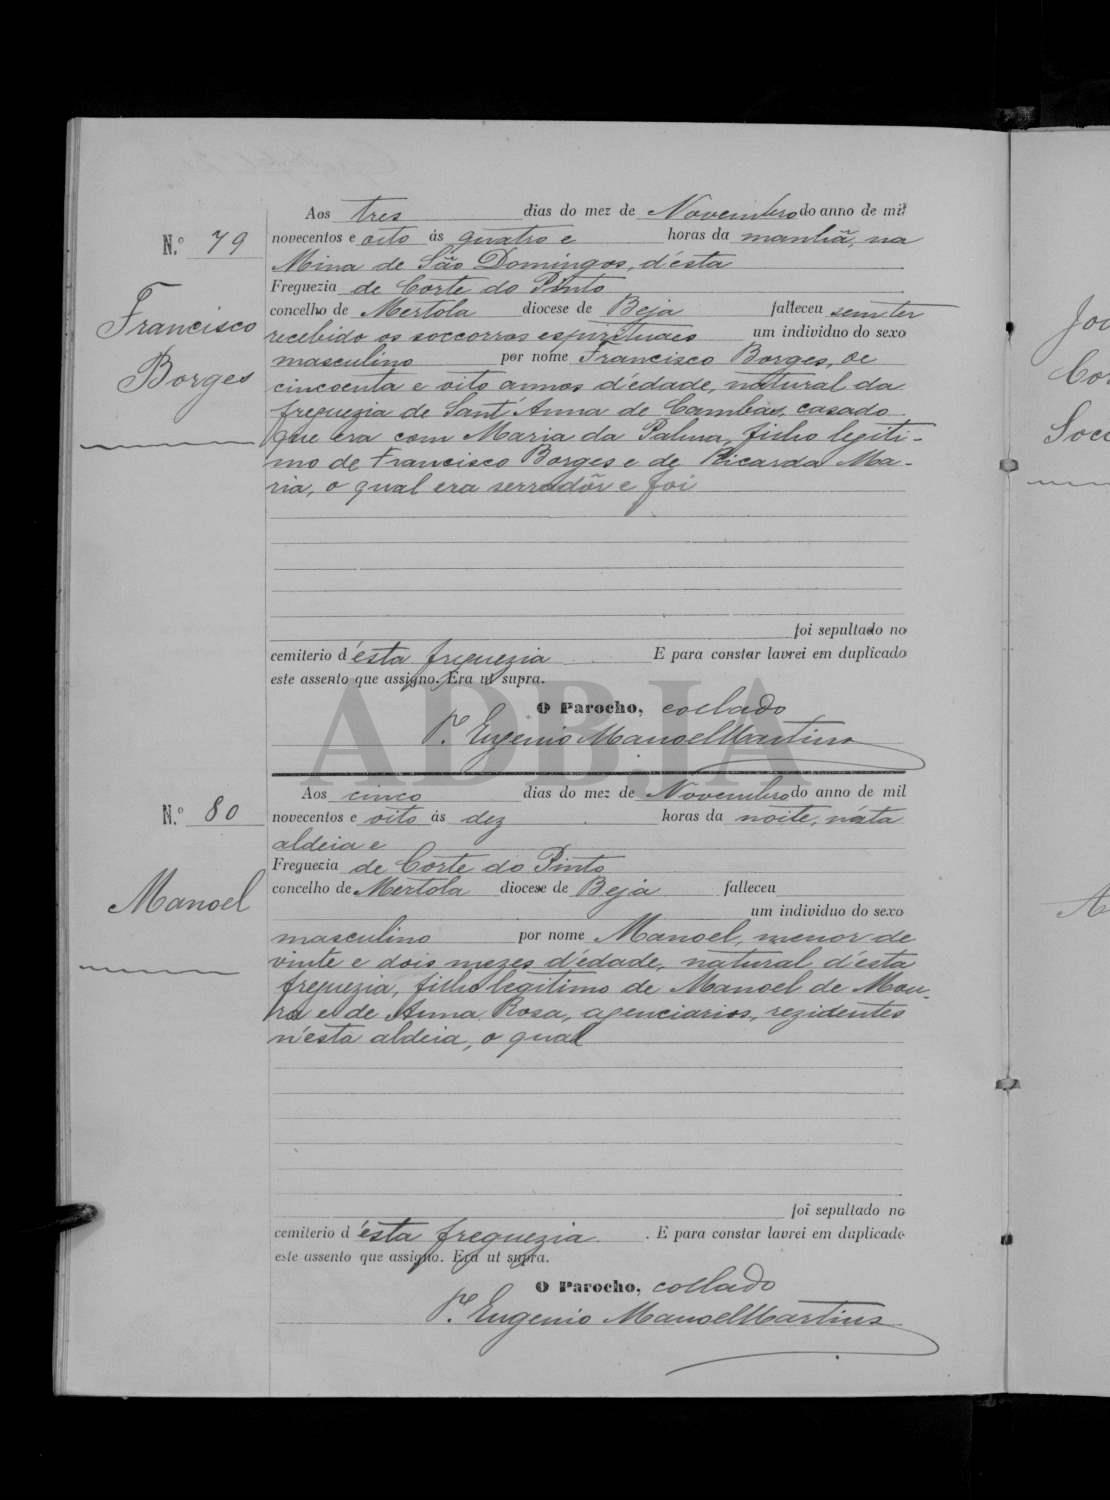 Aos tres dias do mez de Novembro do anno de mil
N.º 79
novecentos e oito ás quatro e horas da manhã, na
Mina de São Domingos, d'ésta
Freguezia de Corte do Pinto
concelho de Mertola diocese de Beja falleceu sem ter
recebido os soccorros espirituaes um individuo do sexo
Francisco
Borges
masculino por nome Francisco Borges, de
cincoenta e oito annos d'édade, natural da
freguezia de Sant'Anna de Cambas, casado
que era com Maria da Palma, filho legiti-
mo de Francisco Borges e de Ricarda Ma-
ria, o qual era serradôr e foi
foi sepultado no
cemiterio d'ésta freguezia E para constar lavrei em duplicado
este assento que assigno. Era ut supra.
O Parocho, collado
P.e Eugenio Manoel Martins
ADBJA
Aos cinco dias do mez de Novembro do anno de mil
N.º 80
novecentos e oito ás dez horas da noite, n'ésta
aldeia e
Freguezia de Corte do Pinto
concelho de Mertola diocese de Beja falleceu
Manoel
um individuo do sexo
masculino por nome Manoel, menor de
vinte e dois mezes d'édade, natural d'ésta
freguezia, filho legitimo de Manoel de Mou-
ra e de Anna Rosa, agenciarios, rezidentes
n'ésta aldeia, o qual
foi sepultado no
cemiterio d'ésta freguezia. E para constar lavrei em duplicado
este assento que assigno. Era ut supra.
O Parocho, collado
P.e Eugenio Manoel Martins